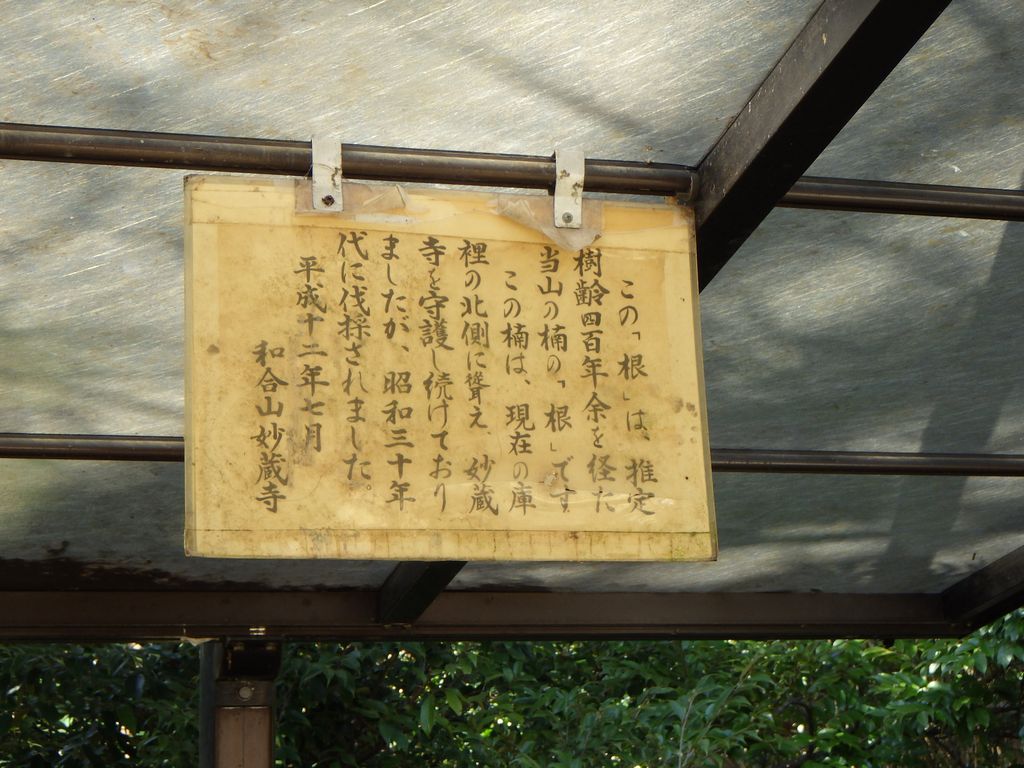 この「根」は、推定
樹齢四百年余を経た
当山の楠の「根」です
この楠は、現在の庫
裡の北側に聳え、妙蔵
寺を守護し続けており
ましたが、昭和三十年
代に伐採されました。
平成十二年七月
和合山妙蔵寺